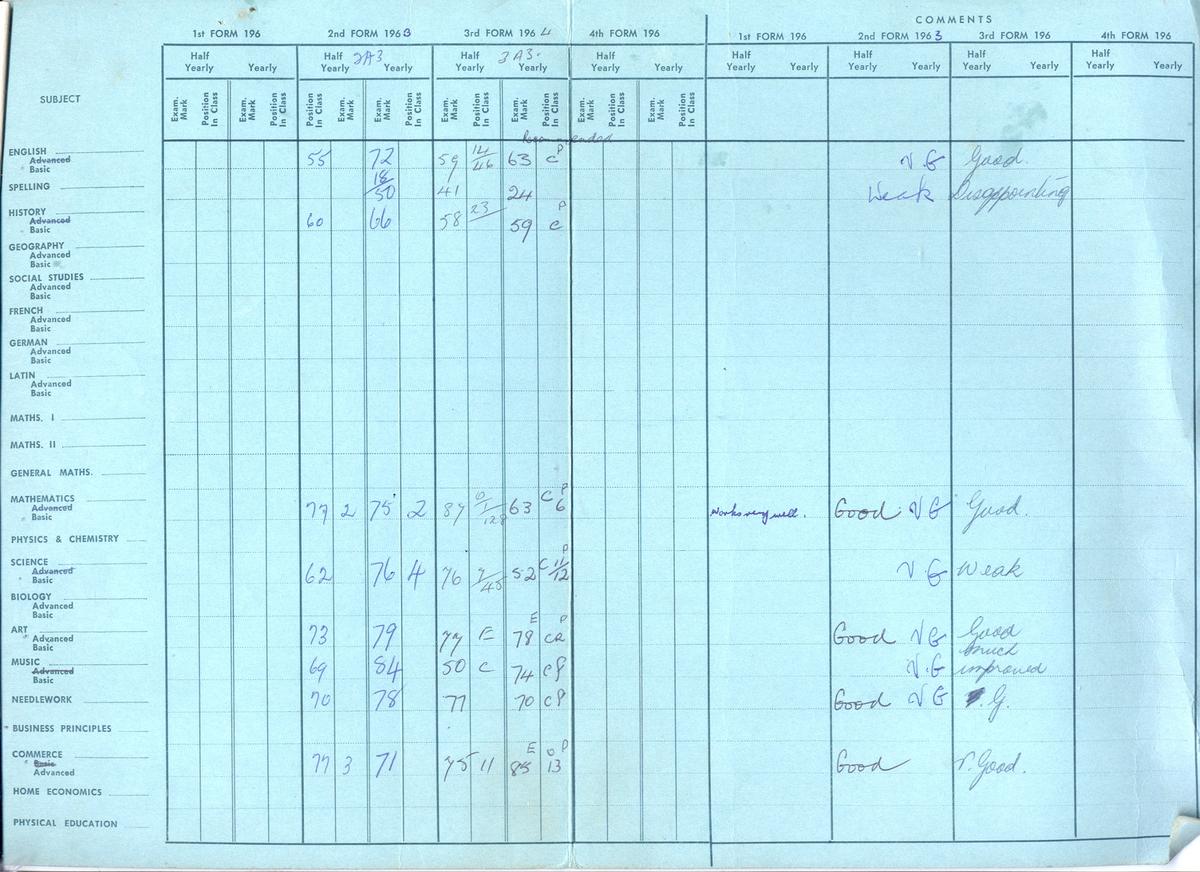 COMMENTS
1st FORM 196 2nd FORM 1963 3rd FORM 1964 4th FORM 196 1st FORM 196 2nd FORM 1963 3rd FORM 196 4th FORM 196
Half Yearly Yearly Half Yearly 2A3 Yearly Half Yearly 3A3. Yearly Half Yearly Yearly
SUBJECT
Exam. Mark Position In Class Exam. Mark Position In Class Position In Class Exam. Mark Exam. Mark Position In Class Exam. Mark Position In Class Exam. Mark Position In Class Exam. Mark Position In Class Exam. Mark Position In Class
Recommended
ENGLISH
Advanced 55 72 59 14/46 63 C P V.G Good.
Basic
SPELLING 18/50 41 24 Weak Disappointing
HISTORY
Advanced 60 66 58 23 59 C P
Basic
GEOGRAPHY
Advanced
Basic
SOCIAL STUDIES
Advanced
Basic
FRENCH
Advanced
Basic
GERMAN
Advanced
Basic
LATIN
Advanced
Basic
MATHS. I
MATHS. II
GENERAL MATHS.
MATHEMATICS
Advanced 77 2 75 2 89 63 C P 6 Works very well. Good V G Good.
Basic
PHYSICS & CHEMISTRY
SCIENCE
Advanced 62 76 4 76 7/45 52 C P 11/12 V G Weak
Basic
BIOLOGY
Advanced
Basic
ART
Advanced 73 79 77 E 78 E P Good V G Good
Basic
MUSIC much
Advanced 69 84 50 C 74 CP V.G improved
Basic
NEEDLEWORK 70 78 77 70 CP Good V G V.G.
BUSINESS PRINCIPLES
COMMERCE
Basic 77 3 71 75 11 85 E P 13 Good V.Good.
Advanced
HOME ECONOMICS
PHYSICAL EDUCATION